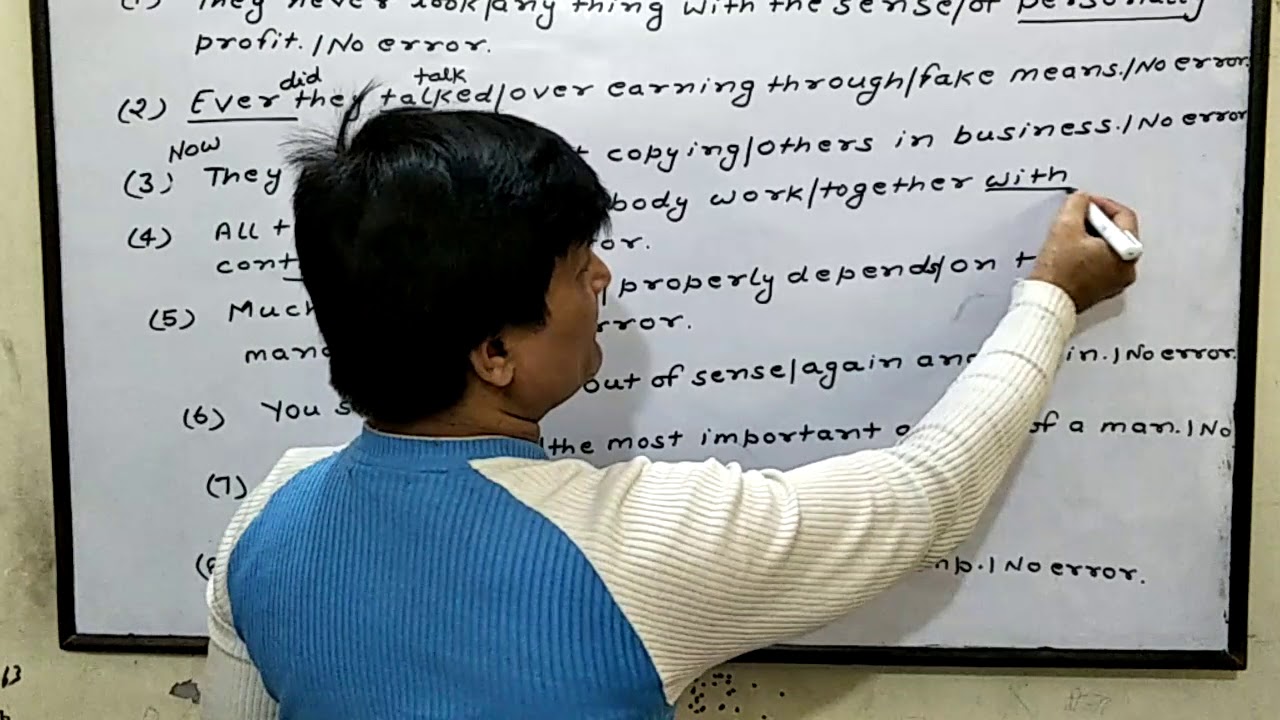 (1) They never look/any thing with the sense/of personally
profit./No error.
did talk
(2) Ever they talked/over earning through/fake means./No error.
Now
(3) They copying/others in business./No error
(4) All body work/together with
cont or.
(5) Much /properly depends/on t
mana rror.
(6) You s out of sense/again an in./No error.
(7) /the most important of a man./No
(8 mp./No error.
63